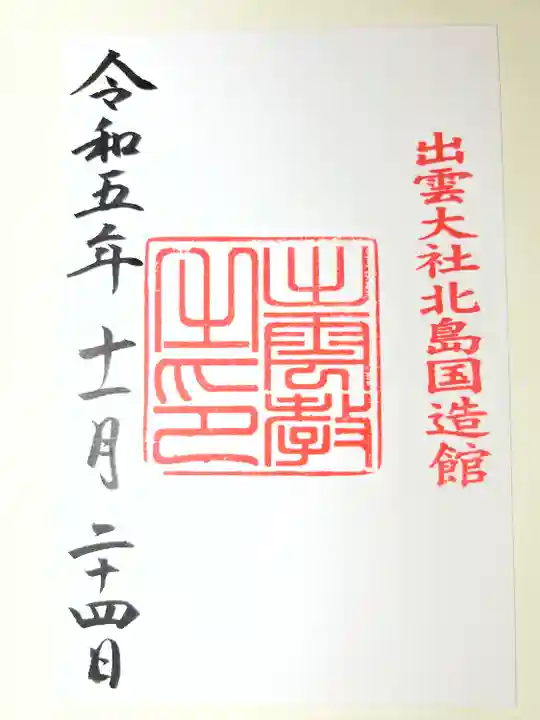 出雲大社北島国造館
出雲教
之印
令和五年十一月二十四日